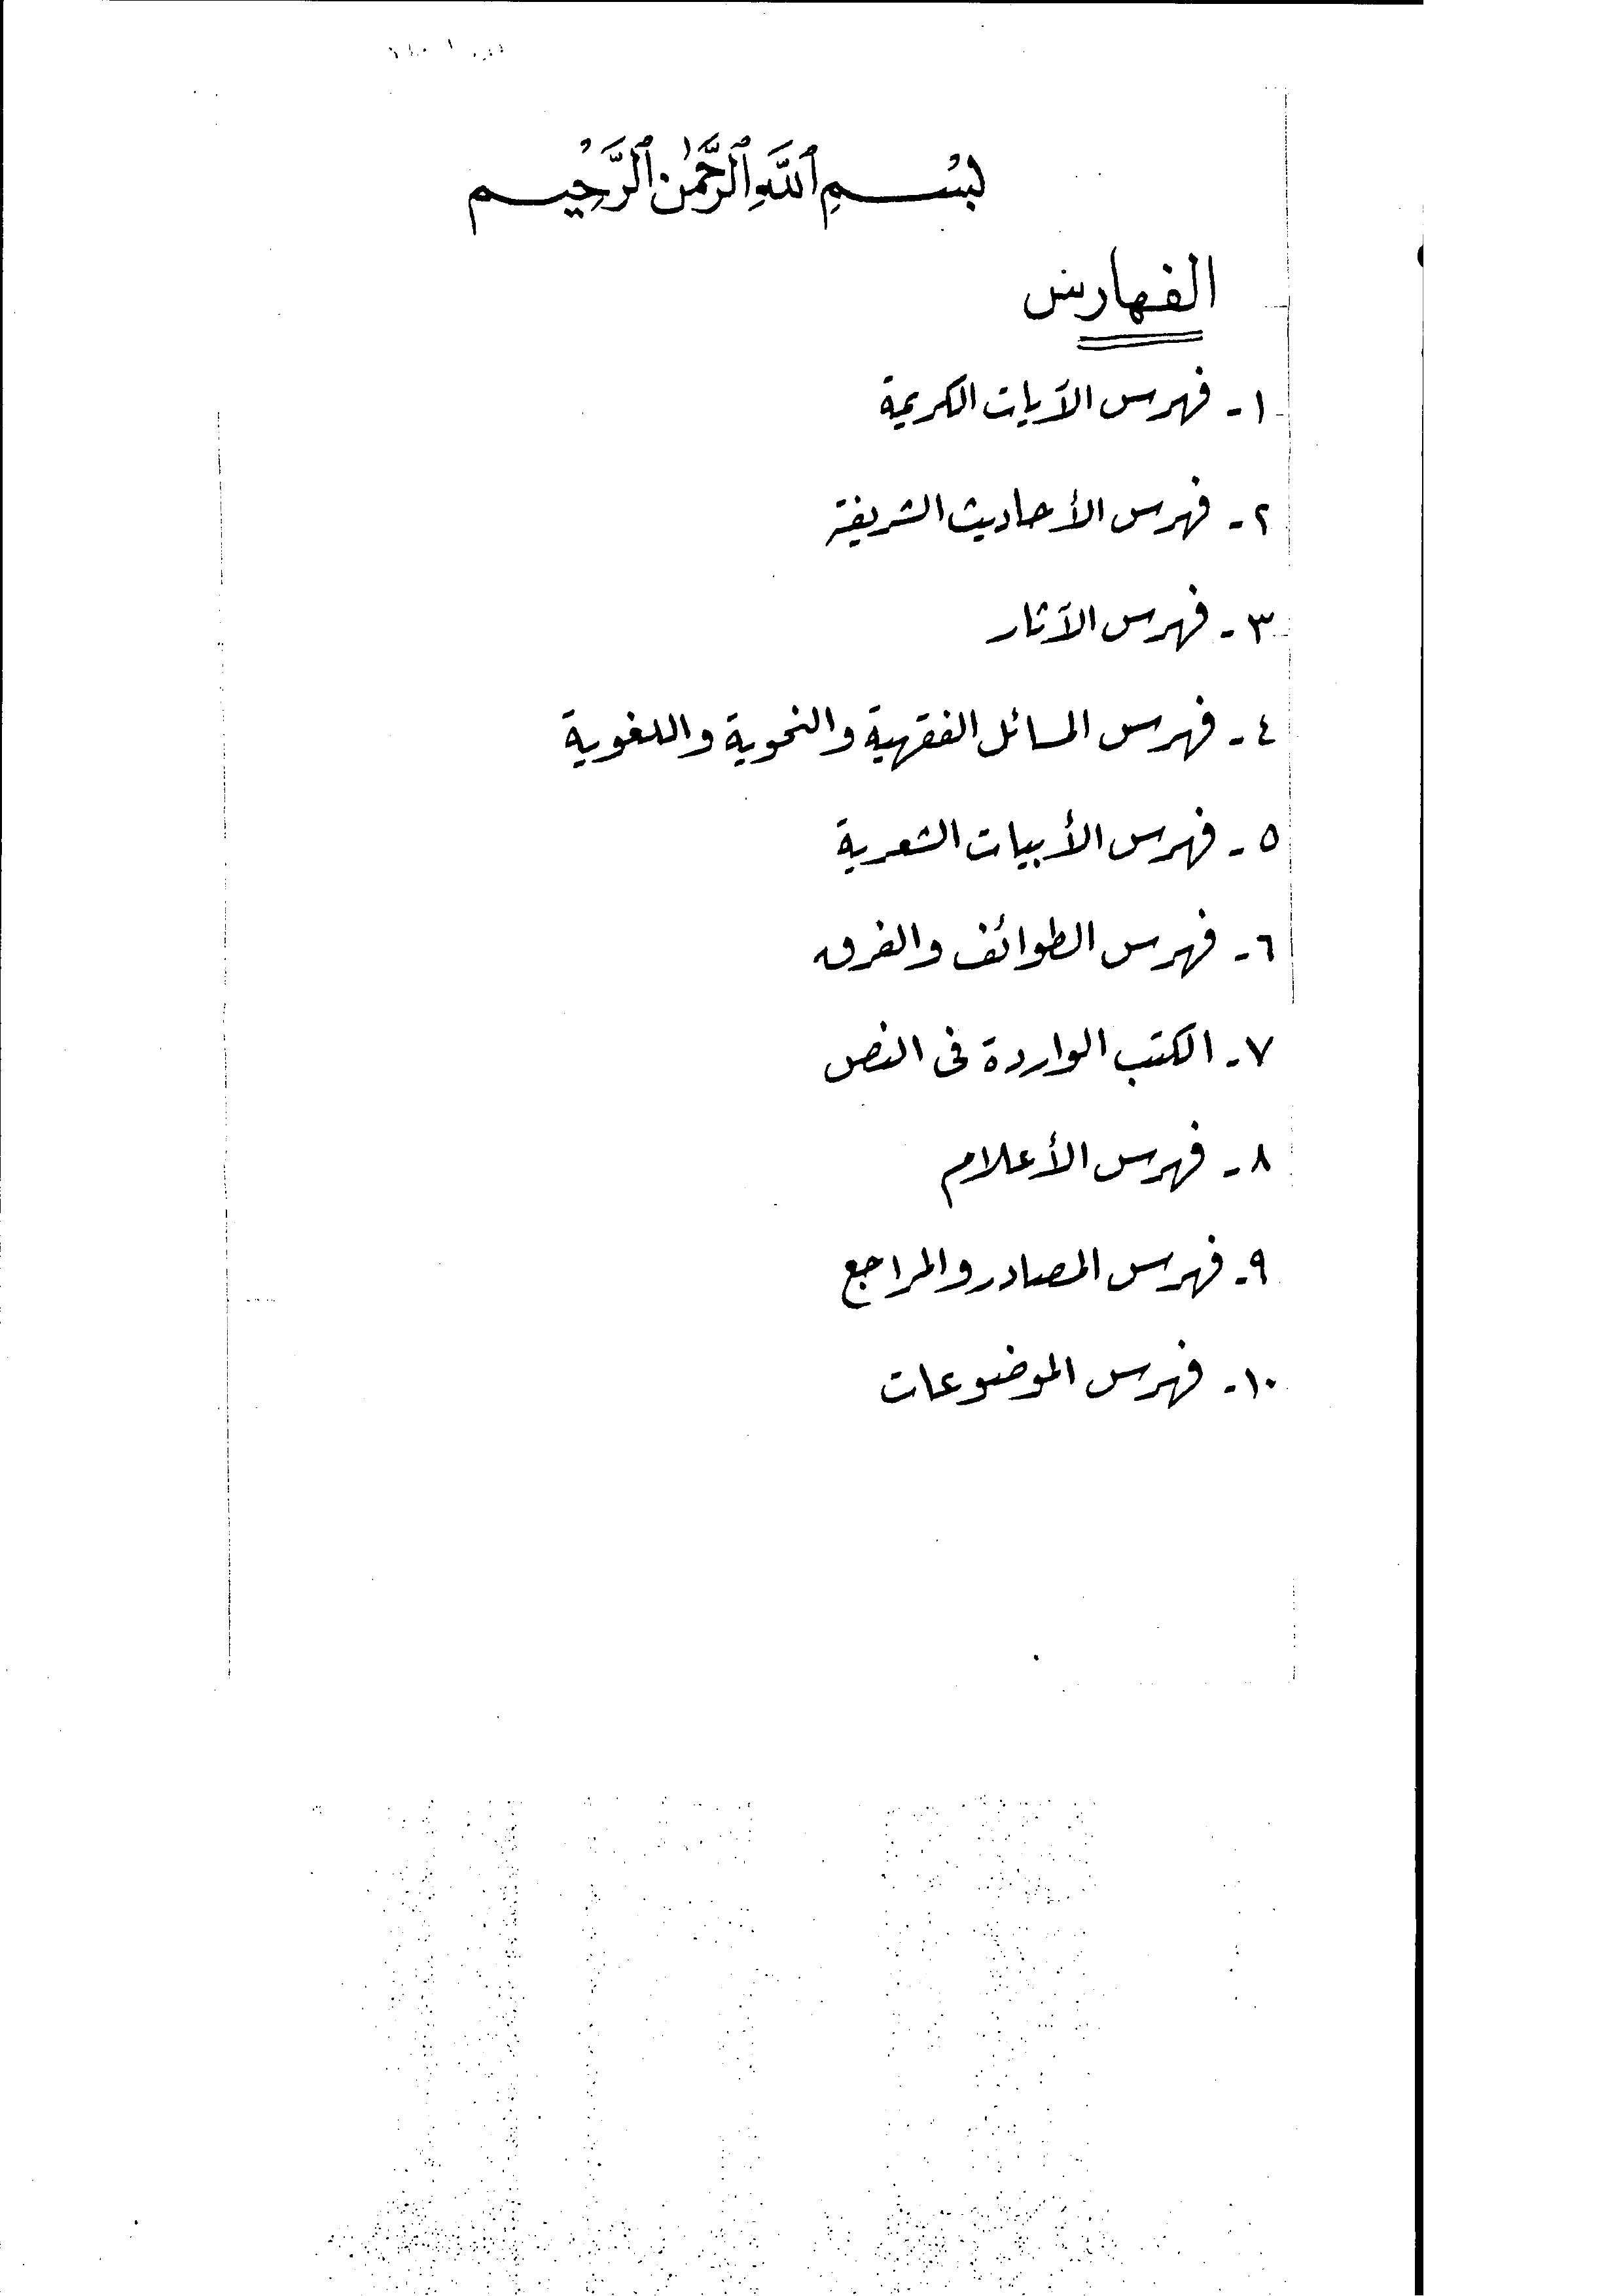 بِسْمِ ٱللَّهِ ٱلرَّحْمَٰنِ ٱلرَّحِيمِ
الفهارس
١- فهرس الآيات الكريمة
٢- فهرس الأحاديث الشريفة
٣- فهرس الآثار
٤- فهرس المسائل الفقهية والنحوية واللغوية
٥- فهرس الأبيات الشعرية
٦- فهرس الطوائف والفرق
٧- الكتب الواردة فى النص
٨- فهرس الأعلام
٩- فهرس المصادر والمراجع
١٠- فهرس الموضوعات